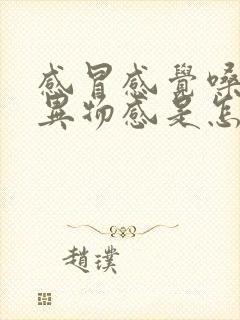 感冒感覺嗓
異物感是怎
趙璞